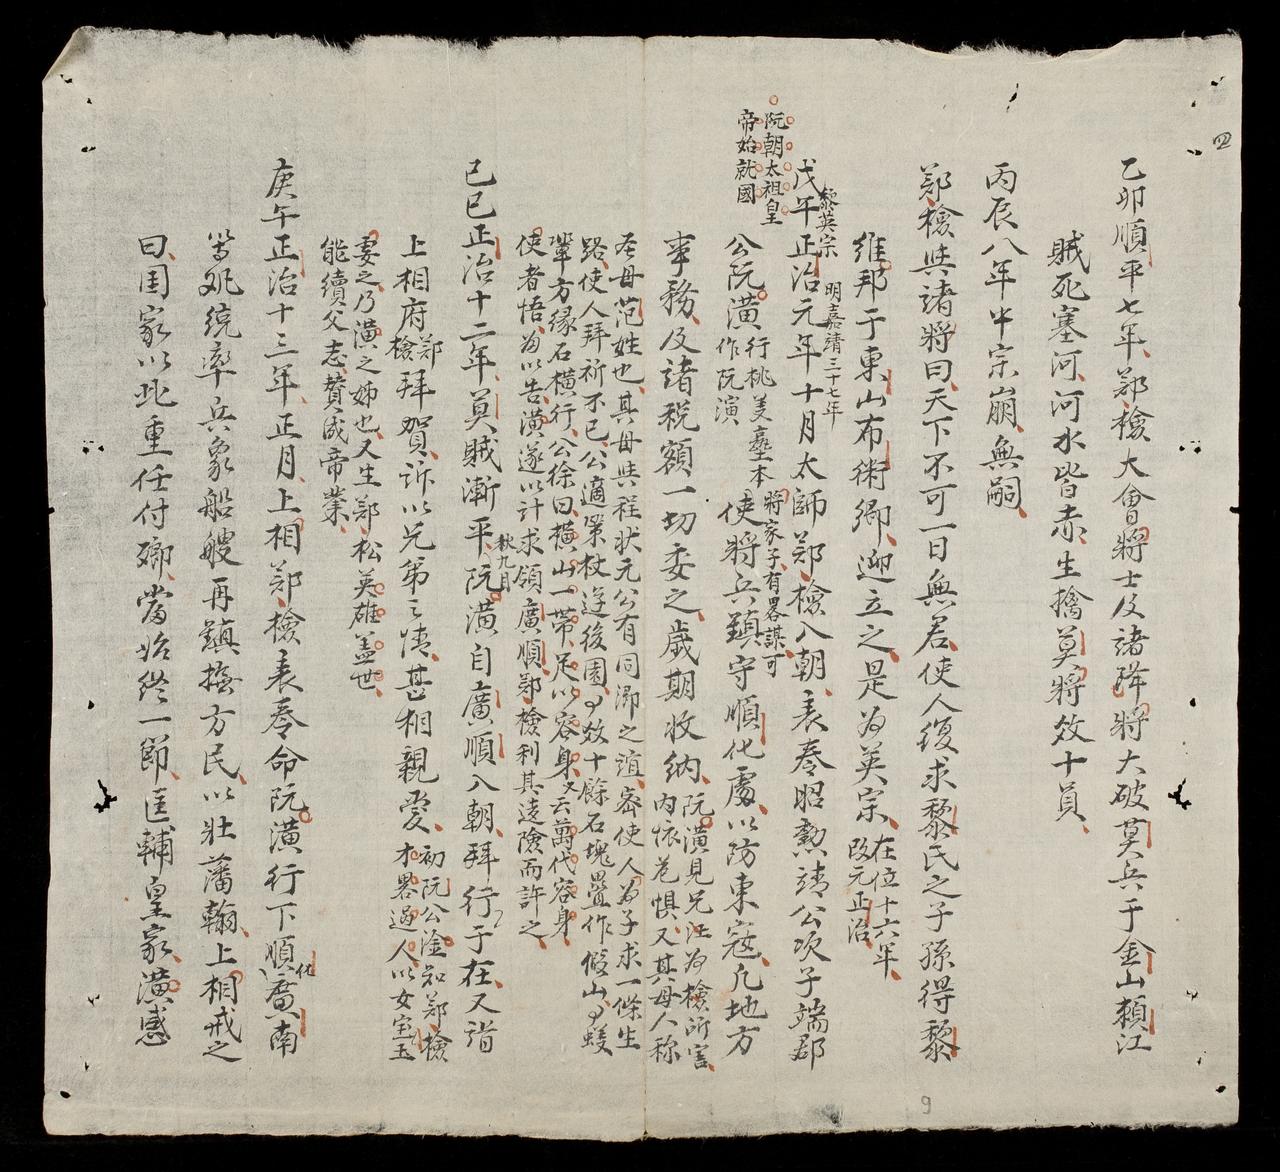 四
乙卯順平七年鄭檢大會將士及諸降將大破莫兵于金山賴江
賊死塞河河水皆赤生擒莫將效十員
丙辰八年中宗崩無嗣
鄭檢與諸將曰天下不可一日無君使人復求黎氏之子孫得黎
維邦于東山布術鄉迎立之是为英宗
在位十六年
改元正治
黎英宗
明嘉靖三十七年
戊午正治元年十月太師鄭檢入朝表奏昭勲靖公次子端郡
阮朝太祖皇
帝始就國
公阮潢
行桃美臺本
作阮演
將家子有畧謀可
使將兵鎮守順化處以防東寇凡地方
事務及諸稅額一切委之歲期收納
阮潢見兄汪为檢所害
内懷危惧又其母人称
圣母范姓也其母與程狀元公有同鄉之誼密使人为子求一條生
路使人拜祈不已公適策杖逰後園
效十餘石塊疊作假山
蛟
輋方緣石橫行公徐曰橫山一帶足以容身又云萬代容身
使者悟为以告潢遂以計求領廣順鄭檢利其遠險而許之
秋九月
己巳正治十二年莫賊漸平阮潢自廣順入朝拜行于在又詣
上相府
鄭
檢
拜賀訴以兄弟之情甚相親愛
初阮公淦知鄭檢
才畧過人以女宝玉
妻之乃潢之姊也又生鄭松英雄盖世
能續父志賛成帝業
庚午正治十三年正月上相鄭檢表奏命阮潢行下順化廣南
等処統率兵象船艘再鎮撫方民以壯藩翰上相戒之
曰国家以此重任付鄉當始終一節匡輔皇家潢感
9